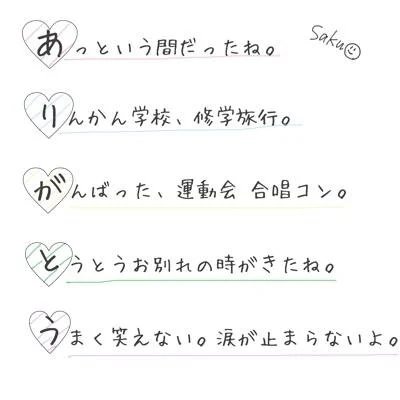 あっという間だったね。
Saku
りんかん学校、修学旅行。
がんばった、運動会 合唱コン。
とうとうお別れの時がきたね。
うまく笑えない。涙が止まらないよ。